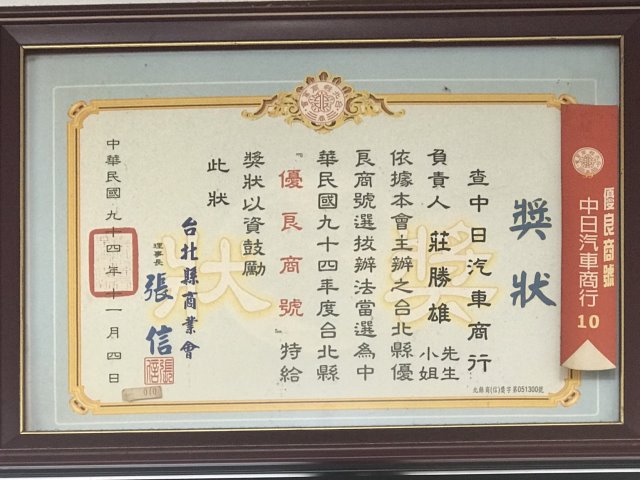 獎狀
查中日汽車商行
負責人 莊勝雄 先生
小姐
依據本會主辦之台北縣優
良商號選拔辦法當選為中
華民國九十四年度台北縣
『優良商號』特給
獎狀以資鼓勵
此狀
台北縣商業會
理事長 張信
中華民國九十四年十一月四日
北縣商(信)獎字第051300號
獎狀
優良商號
中日汽車商行
10
010